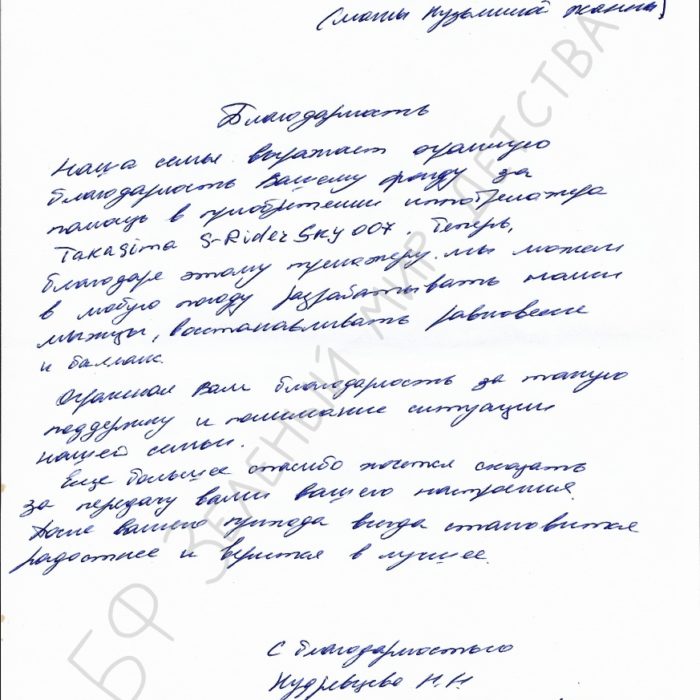 (мамы Кузьминой Жанны)
Благодарность
Наша семья выражает огромную
благодарность Вашему фонду за
помощь в приобретении иппотренажера
Takasima S-Rider Sky 007. Теперь,
благодаря этому тренажеру мы можем
в любую погоду разрабатывать наши
мышцы, восстанавливать равновесие
и баланс.
Огромная Вам благодарность за такую
поддержку и понимание ситуации
нашей семьи.
Еще большее спасибо хочется сказать
за передачу вами вашего настроения.
После вашего прихода всегда становится
радостнее и верится в лучшее.
С благодарностью
Кудрявцева Н.Н
БФ ЗЕЛЕНЫЙ МИР ДЕТСТВА